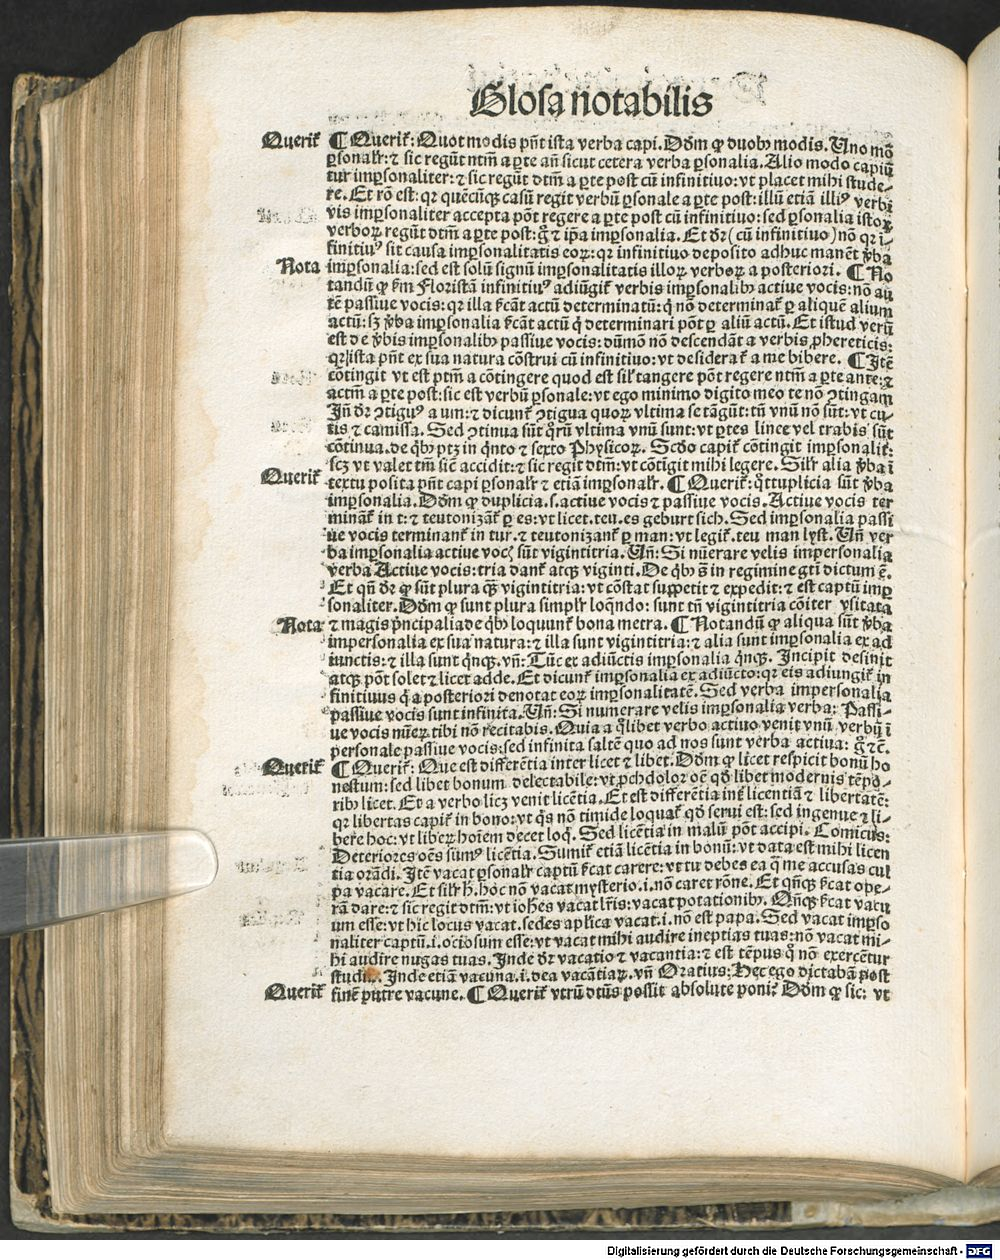 Glosa notabilis
Querit̃ ¶ Querit̃: Quot modis pñt ista verba capi. Dōm ꝙ duobꝫ modis. Uno mō
ꝑsonalr̃: ⁊ sic regūt ntm̄ a ꝑte añ sicut cetera verba ꝑsonalia. Alio modo capiū
tur imꝑsonaliter: ⁊ sic regūt dtm̄ a ꝑte post cū infinitiuo: vt placet mihi stude-
re. Et rō est: qꝛ quēcūqꝫ casū regit verbū ꝑsonale a ꝑte post: illū etiā illiꝰ verbi
vis imꝑsonaliter accepta pōt regere a ꝑte post cū infinitiuo: sed ꝑsonalia istoꝝ
verboꝝ regūt dtm̄ a ꝑte post: g̊ ⁊ ip̄a imꝑsonalia. Et dr̄ (cū infinitiuo) nō qꝛ ī-
finitiuꝰ sit causa imꝑsonalitatis eoꝝ: qꝛ infinitiuo deposito adhuc manēt v̄ba
Nota imꝑsonalia: sed est solū signū imꝑsonalitatis illoꝝ verboꝝ a posteriori. ¶ No
tandū ꝙ ẜm Floristā infinitiuꝰ adiūgit̃ verbis imꝑsonalibꝫ actiue vocis: nō au
tē passiue vocis: qꝛ illa ẜcāt actū determinatū: q̄ nō determinat̃ ꝑ aliquē alium
actū: sꝫ v̄ba imꝑsonalia ẜcāt actū q̄ determinari pōt ꝑ aliū actū. Et istud verū
est de v̄bis imꝑsonalibꝫ passiue vocis: dūmō nō descendāt a verbis ꝓhereticis:
qꝛ ista pñt ex sua natura cōstrui cū infinitiuo: vt desiderat̃ a me bibere. ¶ Itē
cōtingit vt est ptm̄ a cōtingere quod est sil̄ tangere pōt regere ntm̄ a ꝑte ante: ⁊
actm̄ a ꝑte post: sic est verbū ꝑsonale: vt ego minimo digito meo te nō ꝯtingam
Iñ dr̄ ꝯtiguꝰ a um: ⁊ dicunt̃ ꝯtigua quoꝝ vltima se tāgūt: tñ vnū nō sūt: vt cu-
tis ⁊ camissa. Sed ꝯtinua sūt q̄rū vltima vnū sunt: vt ꝑtes lince vel trabis sūt
cōtinua. de qͥbꝫ ptꝫ in qͥnto ⁊ sexto Physicoꝝ. Scd̄o capit̃ cōtingit imꝑsonalit̃:
scꝫ vt valet tm̄ sic̄ accidit: ⁊ sic regit dtm̄: vt cōtigit mihi legere. Silr̄ alia v̄ba ī
Querit̃ textu posita pñt capi ꝑsonalr̃ ⁊ etiā imꝑsonalr̃. ¶ Querit̃: q̊ttuplicia sūt v̄ba
imꝑsonalia. Dōm ꝙ duplicia. s. actiue vocis ⁊ passiue vocis. Actiue vocis ter
minant̃ in t: ⁊ teutonizāt̃ ꝑ es: vt licet. teu. es geburt sich. Sed imꝑsonalia passi
ue vocis terminant̃ in tur. ⁊ teutonizant̃ ꝑ man: vt legit̃. teu man lyst. Uñ ver
ba imꝑsonalia actiue vocꝭ sūt vigintitria. Uñ: Si nūerare velis impersonalia
verba Actiue vocis: tria dant̃ atqꝫ viginti. De qͥbꝫ s̄ in regimine gti dictum ē.
Et qñ dr̄ ꝙ sūt plura qꝫ̄ vigintitria: vt cōstat suppetit ⁊ expedit: ⁊ est captū imꝑ
sonaliter. Dōm ꝙ sunt plura simplr̄ loqn̄do: sunt tñ vigintitria cōiter vsitata
Nota ⁊ magis pͥncipalia de qͥbꝫ loquunt̃ bona metra. ¶ Notandū ꝙ aliqua sūt v̄ba
impersonalia ex sua natura: ⁊ illa sunt vigintitria: ⁊ alia sunt imꝑsonalia ex ad
iunctis: ⁊ illa sunt qͥnqꝫ. vñ: Tūc ex adiūctis imꝑsonalia qͥnqꝫ. Incipit desinit
atqꝫ pōt solet ⁊ licet adde. Et dicunt̃ imꝑsonalia ex adiūcto: qꝛ eis adiungit̃ in
finitiuus q̄ a posteriori denotat eoꝝ imꝑsonalitatē. Sed verba impersonalia
passiue vocis sunt infinita. Uñ: Si numerare velis imꝑsonalia verba: Passi-
ue vocis nūeꝝ tibi nō recitabis. Quia a q̄libet verbo actiuo venit vnū verbū ī
personale passiue vocis: sed infinita saltē quo ad nos sunt verba actiua: g̊ ⁊c̄.
Querit̃ ¶ Querit̃: Que est differētia inter licet ⁊ libet. Dōm ꝙ licet respicit bonū ho
nestum: sed libet bonum delectabile: vt ꝓchdolor oē qd̄ libet modernis tēpo-
ribꝫ licet. Et a verbo licꝫ venit licētia. Et est differētia int̃ licentiā ⁊ libertatē:
qꝛ libertas capit̃ in bono: vt qͥs nō timide loquat̃ qd̄ serui est: sed ingenue ⁊ li-
bere hoc: vt liberꝝ hoīem decet loqͥ. Sed licētia in malū pōt accipi. Comicus:
Deteriores oēs sumꝰ licētia. Sumit̃ etiā licētia in bonū: vt data est mihi licen
tia orādi. Itē vacat ꝑsonalr̃ captū ẜcat carere: vt tu debes ea q̄ me accusas cul
pa vacare. Et silr̄ h̄. hoc nō vacat mysterio. i. nō caret rōne. Et qͥnqꝫ ẜcat ope-
rā dare: ⁊ sic regit dtm̄: vt iohēs vacat lr̄is: vacat potationibꝫ. Qñqꝫ ẜcat vacu
um esse: vt hic locus vacat. sedes aplica vacat. i. nō est papa. Sed vacat imꝑso
naliter captū. i. ociosum esse: vt vacat mihi audire ineptias tuas: nō vacat mi-
hi audire nugas tuas. Inde dr̄ vacatio ⁊ vacantia: ⁊ est tēpus q̊ nō exercētur
studia. Inde etiā vacuna. i. dea vacātiaꝝ. vñ Oratius: Hec ego dictabā post
Querit̃ finē putre vacune. ¶ Querit̃ vtrū dtūs possit absolute poni? Dōm ꝙ sic: vt
Digitalisierung gefördert durch die Deutsche Forschungsgemeinschaft - DFG